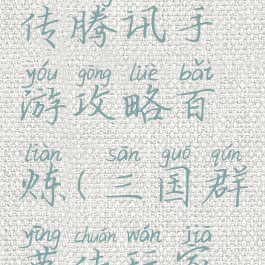 传腾讯手
yóu gōng lüè bǎi
游攻略百
liàn sān guó qún
炼(三国群
yīng chuán wán jiā
英传玩家